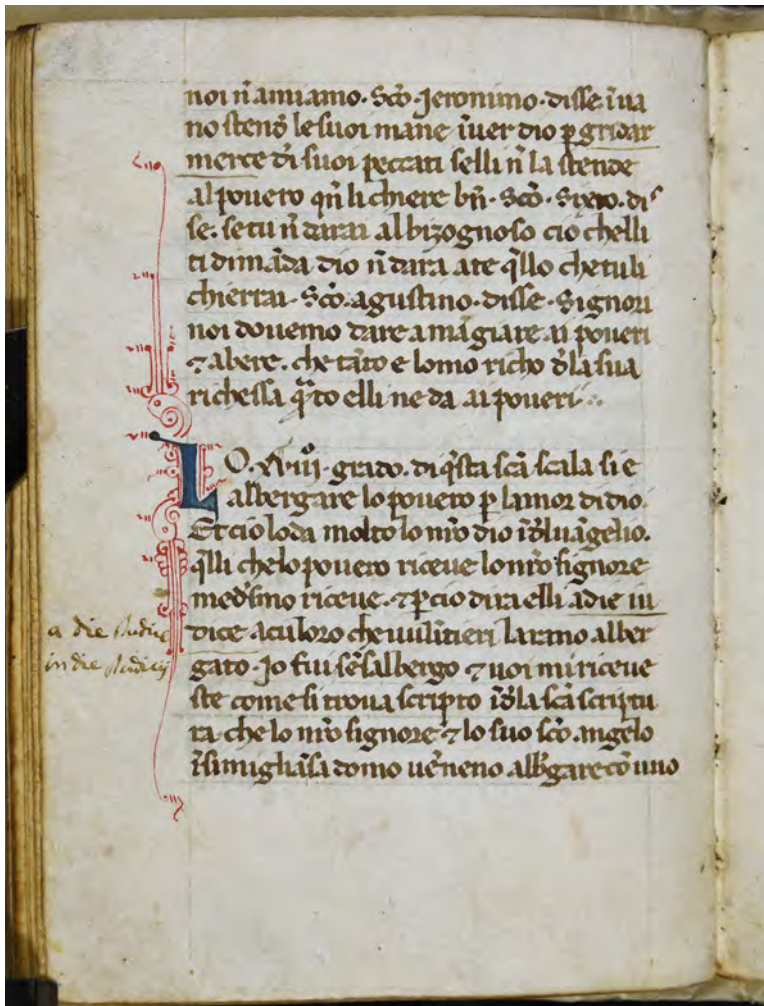 noi n̄ amiamo. Sc̄o. Jeronimo. disse īua
no stend̄ le suoi mane īuer dio ꝑ gridar
merce di suoi peccati selli n̄ la stende
al pouero qn̄ li chiere bn̄. Sc̄o. Sixto. dis
se. se tu n̄ darai al bizognoso cio chelli
ti dimāda dio n̄ dara a te q̄llo che tu li
chierrai. Sc̄o. agustino. disse. Signori
noi douemo dare a māgiare. ai poueri
⁊ a bere. che tāto e lomo richo d̄la sua
richessa q̄to elli ne da .ai poueri.
LO. xviiij. grado. di q̄sta sc̄a scala si e
albergare lo pouero ꝑ lamor di dio.
Et cio loda molto lo nr̄o dio īd̄luāgelio.
q̄lli che lo pouero riceue lo nr̄o signore
med̄smo riceue. ⁊ ꝑcio dira elli adie iu
dice a culoro che uulītieri larāno alber
gato. Jo fui sēsalbergo ⁊ uoi mi riceue
ste come si troua scripto īd̄la sc̄a scriptu
ra. che lo nr̄o signore ⁊ lo suo sc̄o. angelo
īsimigliāsa domo uēneno alb̄gare cō uno
a die Iudice
in die Iudicij